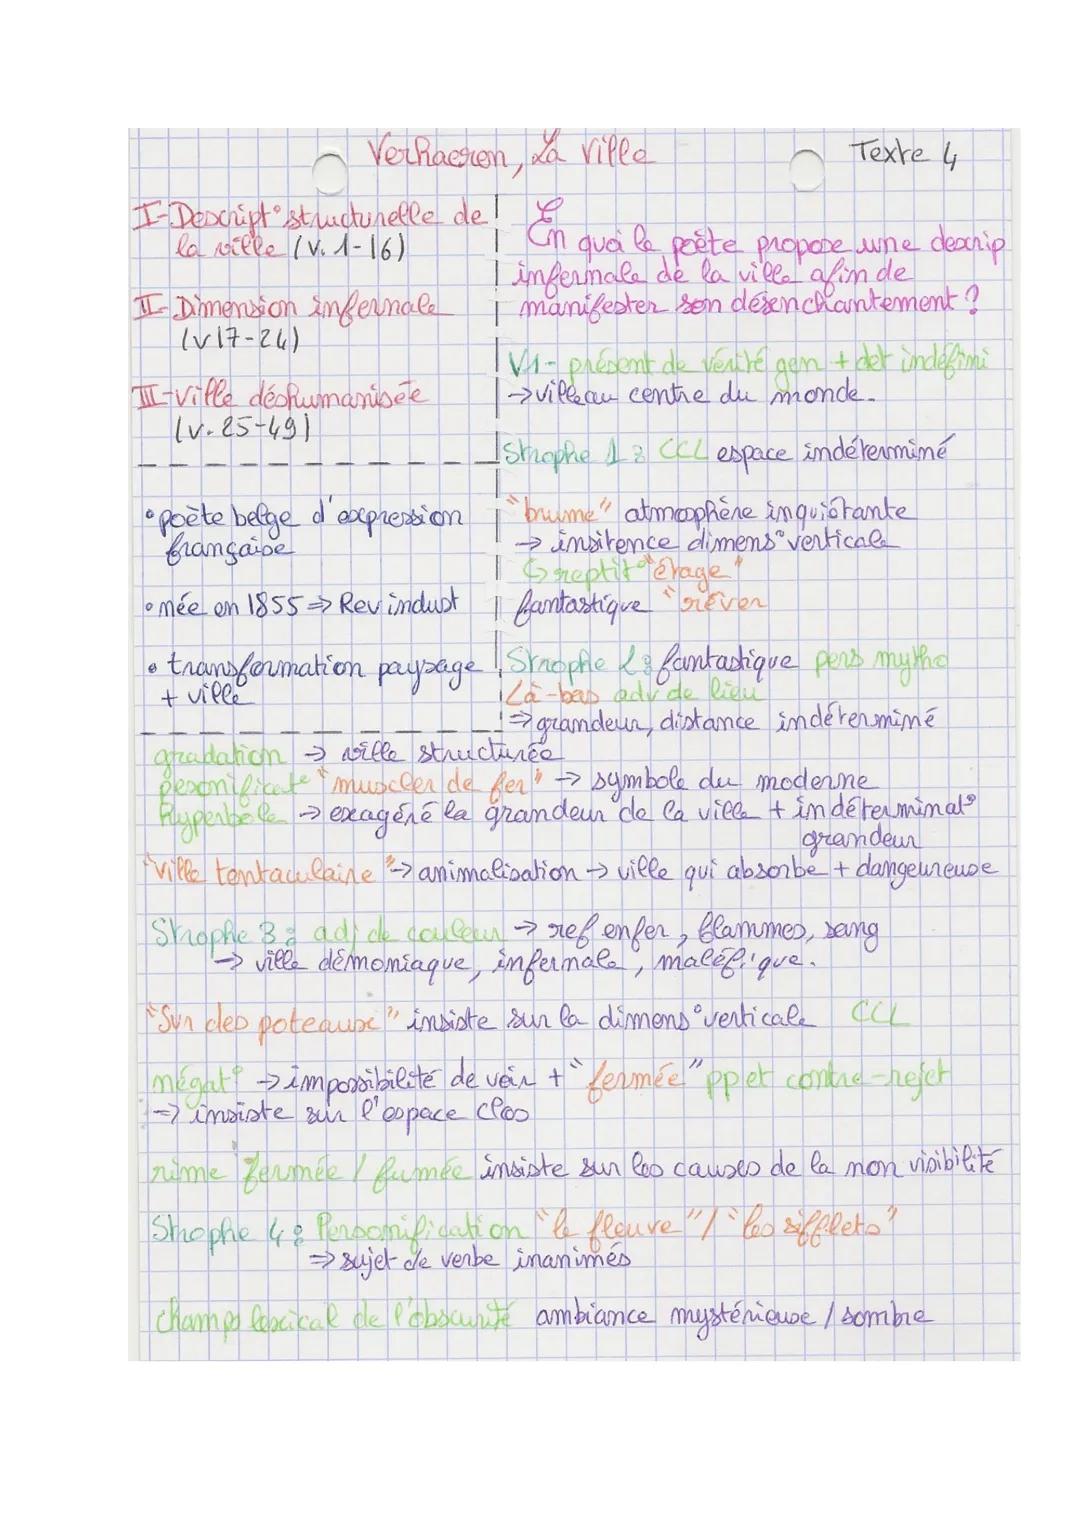 Verhaeren, La Ville
Texte 4
I-Descript° structurelle de
la ville (v. 1-16)
II-Dimension infernale
(v17-24)
III-Ville déshumanisée
(v.25-49)
• poète belge d'expression
française
• mée en 1855 ⇒ Rev indust
• transformation paysage
+ ville
En quoi le poète propose une descrip
infernale de la ville afin de
manifester son désenchantement ?
V1- présent de vérité gen + det indéfini
→ ville au centre du monde.
Strophe 1 : CCL espace indéterminé
"brume" atmosphère inquiétante
→ insitence dimens° verticale
↳ reptit° "étage"
fantastique "rêver
Strophe 2 : fantastique pers mytho
Là-bas adv de lieu
⇒ grandeur, distance indéterminé
gradation → ville structurée
"muscler de fer" → symbole du moderne
Hyperbole → exagéré la grandeur de la ville + indéterminat°
grandeur
"Ville tentaculaire" → animalisation → ville qui absorbe + dangeureuse
Strophe 3 : adj de couleur → ref enfer, flammes, sang
→ ville démoniaque, infernale, maléfique.
"Sur des poteaux" insiste sur la dimens° verticale CCL
mégat° → impossibilité de voir + "fermée" pp et contre-rejet
⇒ insiste sur l'espace clos
rime fermée / fumée insiste sur les causes de la non visibilité
Strophe 4 : Personnification "le fleuve" / "les sifflets"
⇒ sujet de verbe inanimés
champ lexical de l'obscurité ambiance mystérieuse / sombre